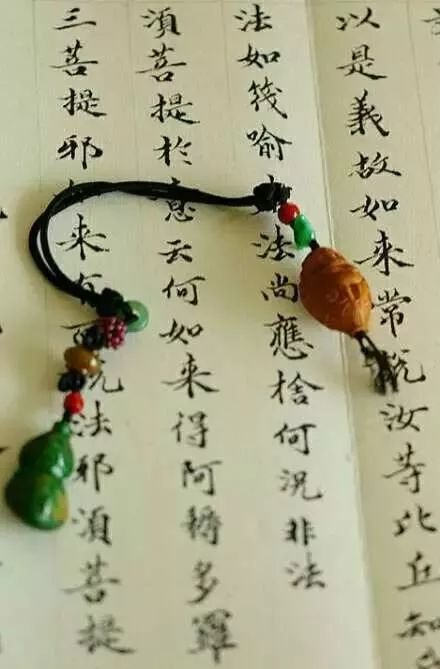 以是義故如来常說汝等比丘知
法如筏喻法尚應捨何況非法
湏菩提於意云何如来得阿耨多羅
三菩提邪来有說法邪湏菩提